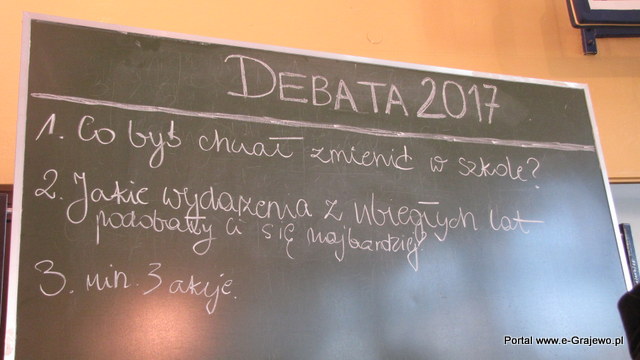 DEBATA 2017
1. Co byś chciał zmienić w szkole?
2. Jakie wydażenia z ubiegłych lat
podobały Ci się najbardziej
3. min. 3 akcje.
Portal www.e-Grajewo.pl